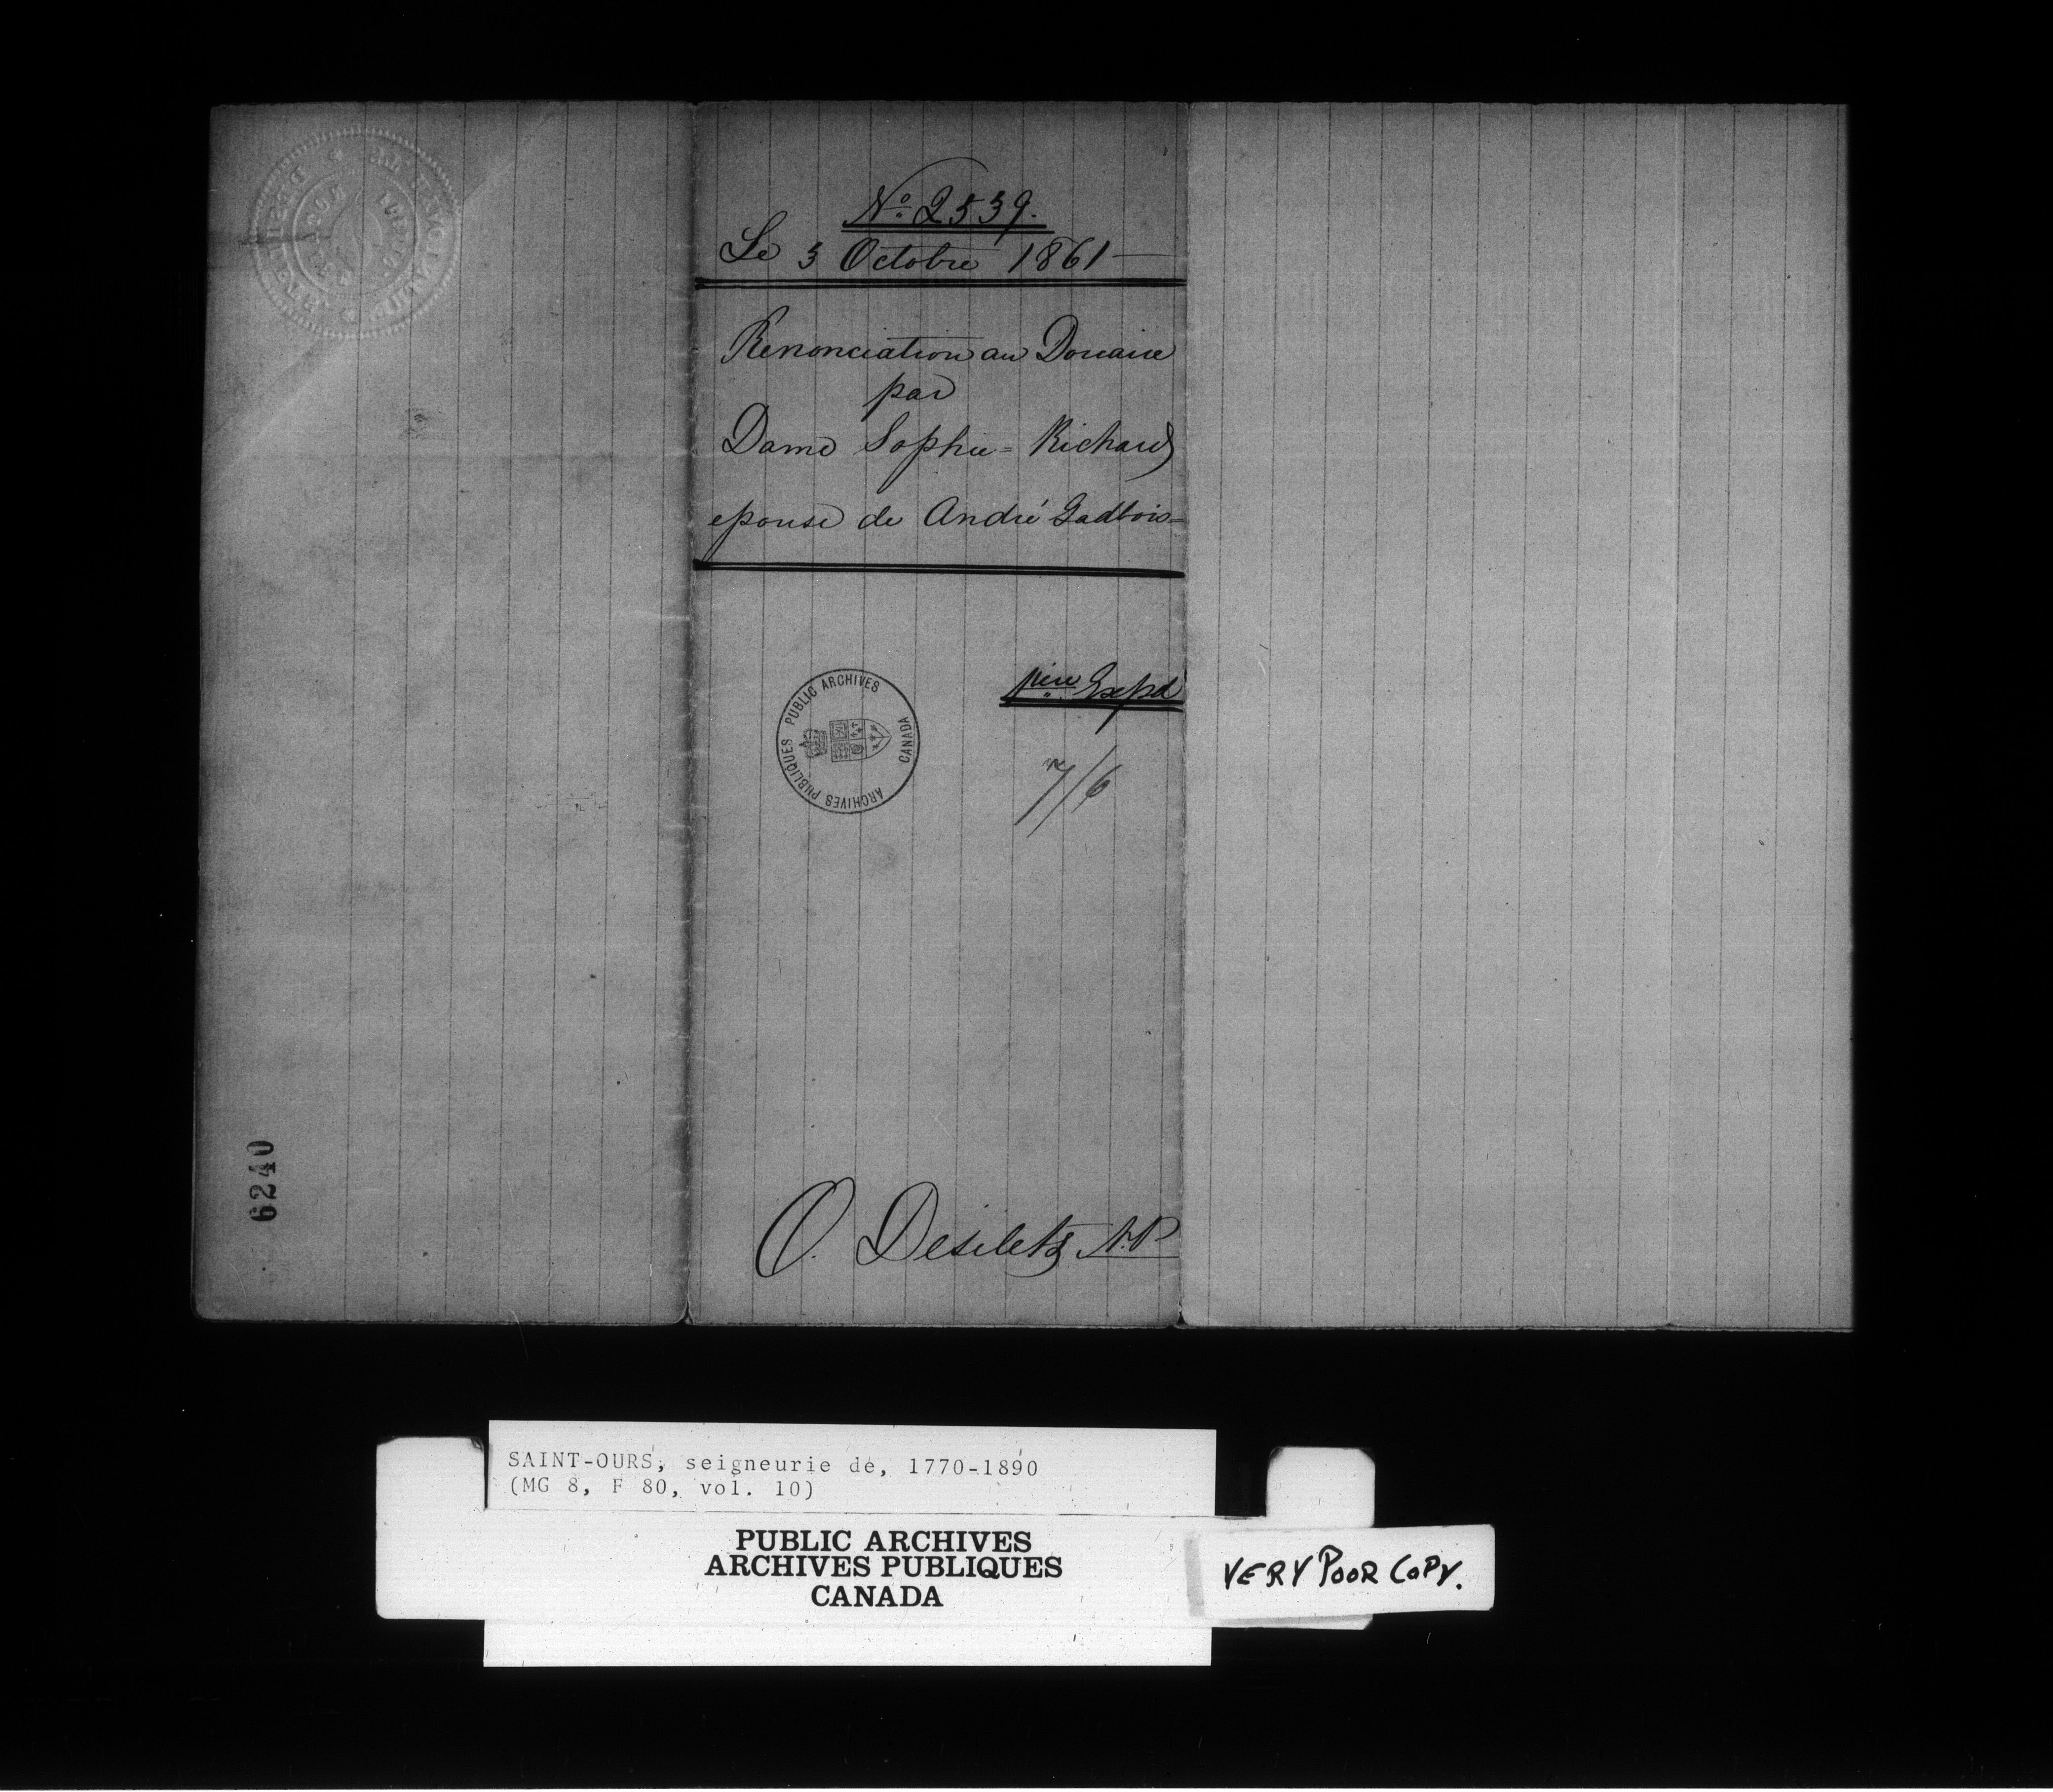 No. 2539.
Le 3 Octobre 1861 —
Renonciation au Douaire
par
Dame Sophie = Richard
epouse de André Gadbois =
PUBLIC ARCHIVES
ARCHIVES PUBLIQUES
CANADA
1ère Expd
7/6
6240
O. Desilets N.P
SAINT-OURS, seigneurie de, 1770-1890
(MG 8, F 80, vol. 10)
PUBLIC ARCHIVES
ARCHIVES PUBLIQUES
CANADA
VERY POOR COPY.